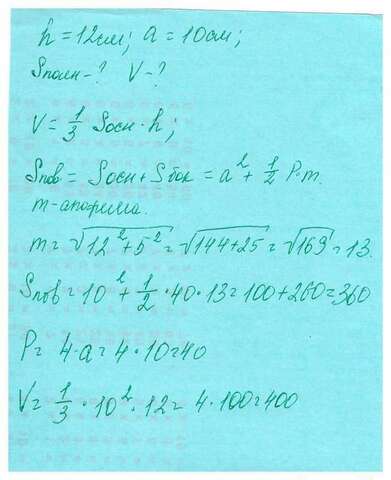 h = 12см; a = 10см;
Sполн - ? V - ?
V = 1/3 Sосн · h;
Sпов = Sосн + Sбок = a² + 1/2 P·m.
m - апофема.
m = √(12² + 5²) = √(144+25) = √169 = 13.
Sпов = 10² + 1/2 · 40 · 13 = 100 + 260 = 360
P = 4 · a = 4 · 10 = 40
V = 1/3 · 10² · 12 = 4 · 100 = 400